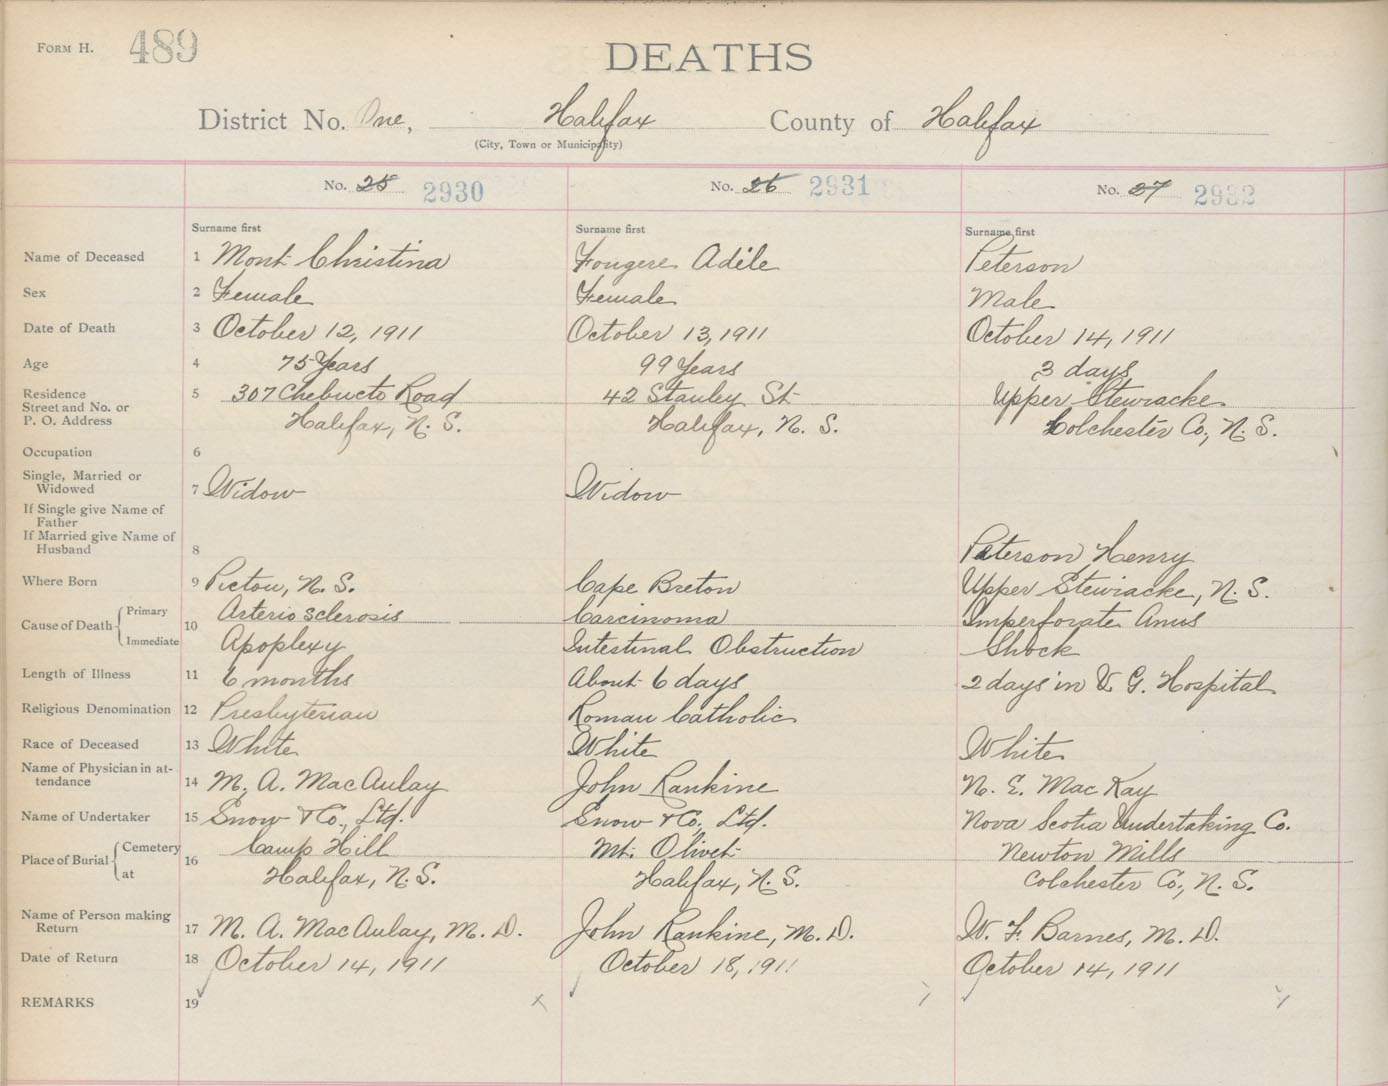 FORM H. 489
DEATHS
District No. One, Halifax County of Halifax
(City, Town or Municipality)
No. 25 2930 No. 26 2931 No. 27 2932
Surname first Surname first Surname first
Name of Deceased 1 Mont Christina Fougere Adéle Peterson
Sex 2 Female Female Male
Date of Death 3 October 12, 1911 October 13, 1911 October 14, 1911
Age 4 75 Years 99 Years 3 days
Residence 5 307 Chebucto Road 42 Stanley St Upper Stewiacke
Street and No. or
P. O. Address Halifax, N. S. Halifax, N. S. Colchester Co., N. S.
Occupation 6
Single, Married or
Widowed 7 Widow Widow
If Single give Name of
Father
If Married give Name of
Husband 8 Peterson, Henry
Where Born 9 Pictou, N. S. Cape Breton Upper Stewiacke, N. S.
Cause of Death Primary 10 Arterio sclerosis Carcinoma Imperforate Anus
Immediate Apoplexy Intestinal Obstruction Shock
Length of Illness 11 6 months About 6 days 2 days in V. G. Hospital
Religious Denomination 12 Presbyterian Roman Catholic
Race of Deceased 13 White White White
Name of Physician in at-
tendance 14 M. A. MacAulay John Rankine N. E. MacKay
Name of Undertaker 15 Snow & Co., Ltd. Snow & Co., Ltd. Nova Scotia Undertaking Co.
Place of Burial Cemetery 16 Camp Hill Mt. Olivet Newton Mills
at Halifax, N. S. Halifax, N. S. Colchester Co., N. S.
Name of Person making
Return 17 M. A. MacAulay, M. D. John Rankine, M. D. W. F. Barnes, M. D.
Date of Return 18 October 14, 1911 October 18, 1911 October 14, 1911
REMARKS 19